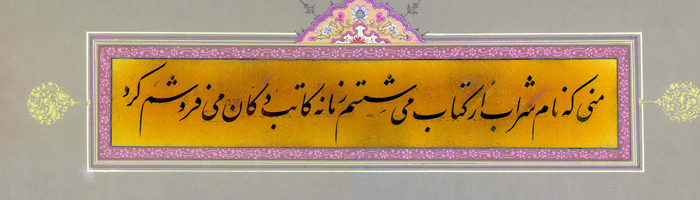 منی که نام شراب از کتاب می شستم زمانه کاتب دکان می فروشم کرد